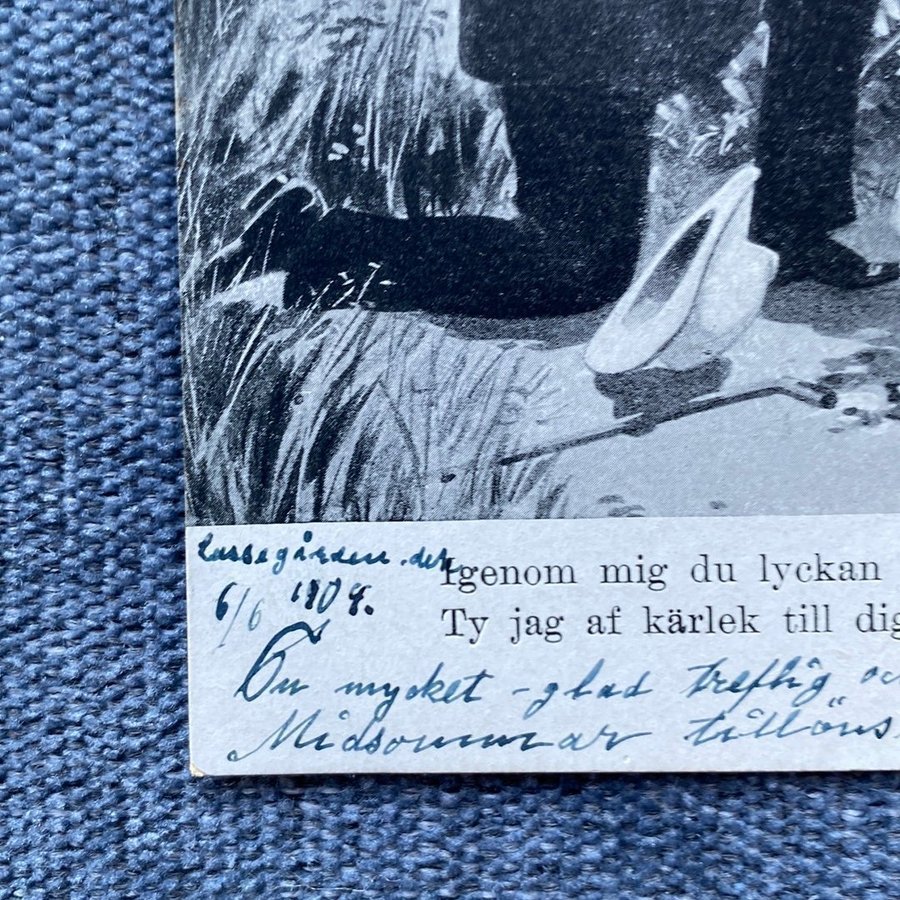 Lassegården. den
6/6 1904.
Igenom mig du lyckan
Ty jag af kärlek till dig
En mycket - glad treflig oc
Midsommar tillöns